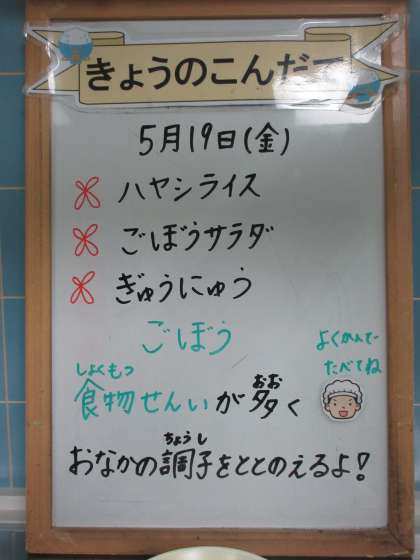 きょうのこんだて
5月19日(金)
ハヤシライス
ごぼうサラダ
ぎゅうにゅう
ごぼう
よくかんで
たべてね
しょくもつ
おお
食物せんいが多く
ちょうし
おなかの調子をととのえるよ!